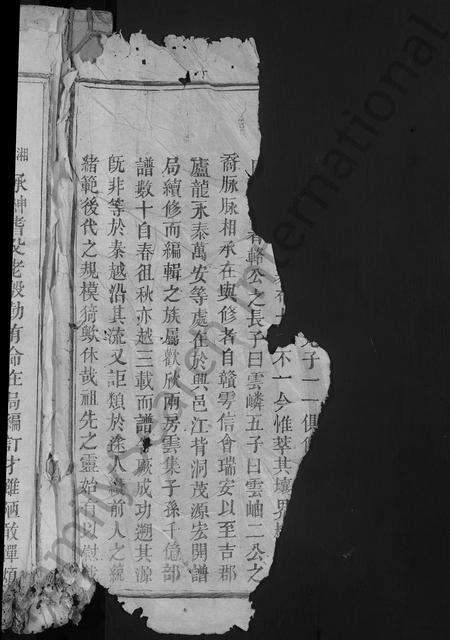 子一一俱
不一今惟萃其壤界
峰公之長子曰雲嶙五子曰雲岫二公之
裔脉脉相承在與修者自贛雩信會瑞安以至吉郡
廬龍永泰萬安等處在於興邑江背洞茂源宏開譜
局續修而編輯之族屬歡欣兩房雲集子孫千億部
譜數十自春徂秋亦越三載而譜厥成功遡其源
既非等於秦越沿其流又詎類於途人纘前人之統
緒範後代之規模猗歟休哉祖先之靈始有以慰
湘
承紳耆父老毅幼有命在局編訂才雖陋敢憚煩
FamilySearch International